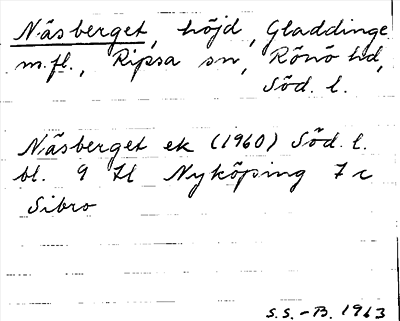 Näsberget, höjd, Gladdinge
m.fl., Ripsa sn, Rönö hd,
Söd. l.
Näsberget ek (1960) Söd. l.
bl. 9 H Nyköping 7 c
Sibro
S.S.-B. 1963